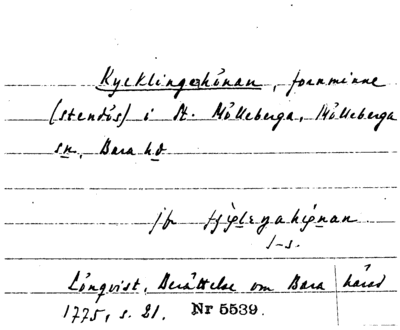 Kycklingahönan, fornminne
(stendös) i St. Mölleberga, Mölleberga
sn, Bara hd
jfr
Lönqvist, Berättelse om Bara härad
1775, s. 21. Nr 5539.